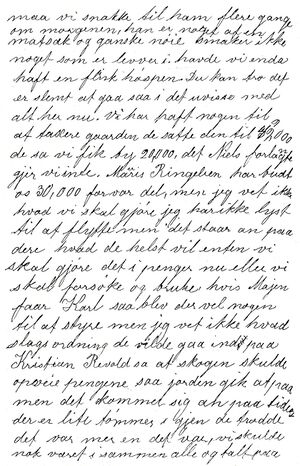 maa vi snakke til ham flere gange
om morgenen, han er noget af en
matsæk og ganske nøie smaker ikke
noget som er levver i havde vi enda
haft en flink haspen. Du kan tro det
er slemt at gaa saa i det uvisse med
alt her nu. Vi har haft nogen til
at taxere gaarden de satte den til
de sa vi fik by 20,000, det Niels forlangte
gjir vi inle. Märis Ringelien har budt
os 30,000 for vor del, men jeg vet ikke
hvad vi skal gjöre jeg har ikke lyst
til at flytte men det staar an paa
dere hvad de helst vil enten vi
skal gjöre det i penger nu eller vi
skal forsöke og bruke hvis Majn
faar Karl saa blev der vel nogen
til at styre men jeg vet ikke hvad
slags ordning de vilde gaa ind paa
Kristian Revold sa at skogen skulde
opveie pengene saa jorden gik at paa
men det kommer sig an paa tider
der er lite tömmer i gjen de trodde
det var mer en det var, vi skulde
nok varet i sammen alle og talt paa